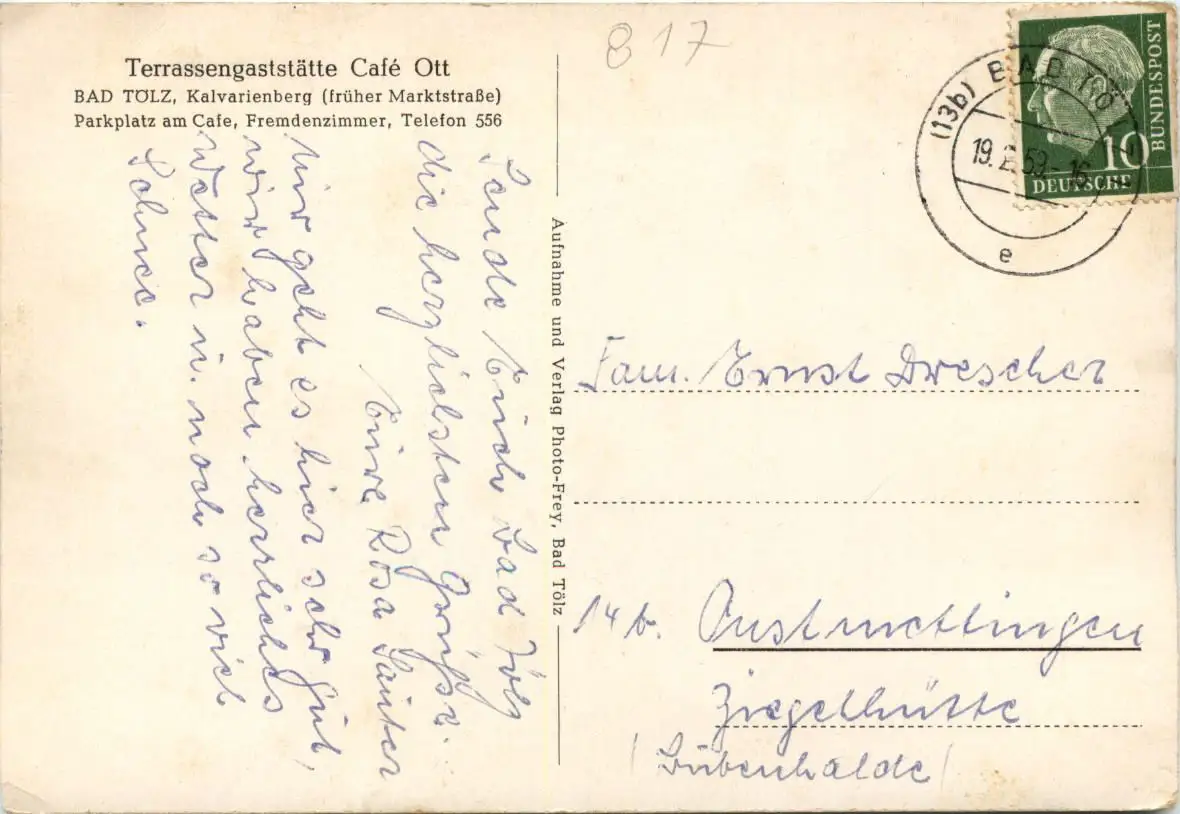 817
Terrassengaststätte Café Ott
BAD TÖLZ, Kalvarienberg (früher Marktstraße)
Parkplatz am Cafe, Fremdenzimmer, Telefon 556
Sende Euch Bad Tölz
die herzlichsten Grüße.
Eure Rosa Sauter
Mir geht es hier sehr gut,
wir haben herrliches
Wetter u. noch so viel
Schnee.
Aufnahme und Verlag Photo-Frey, Bad Tölz
(13b) BAD TÖ
19. 2. 59.- 16
e
10
DEUTSCHE
BUNDESPOST
Fam. Ernst Drescher
14 b. Onstmettingen
Ziegelhütte